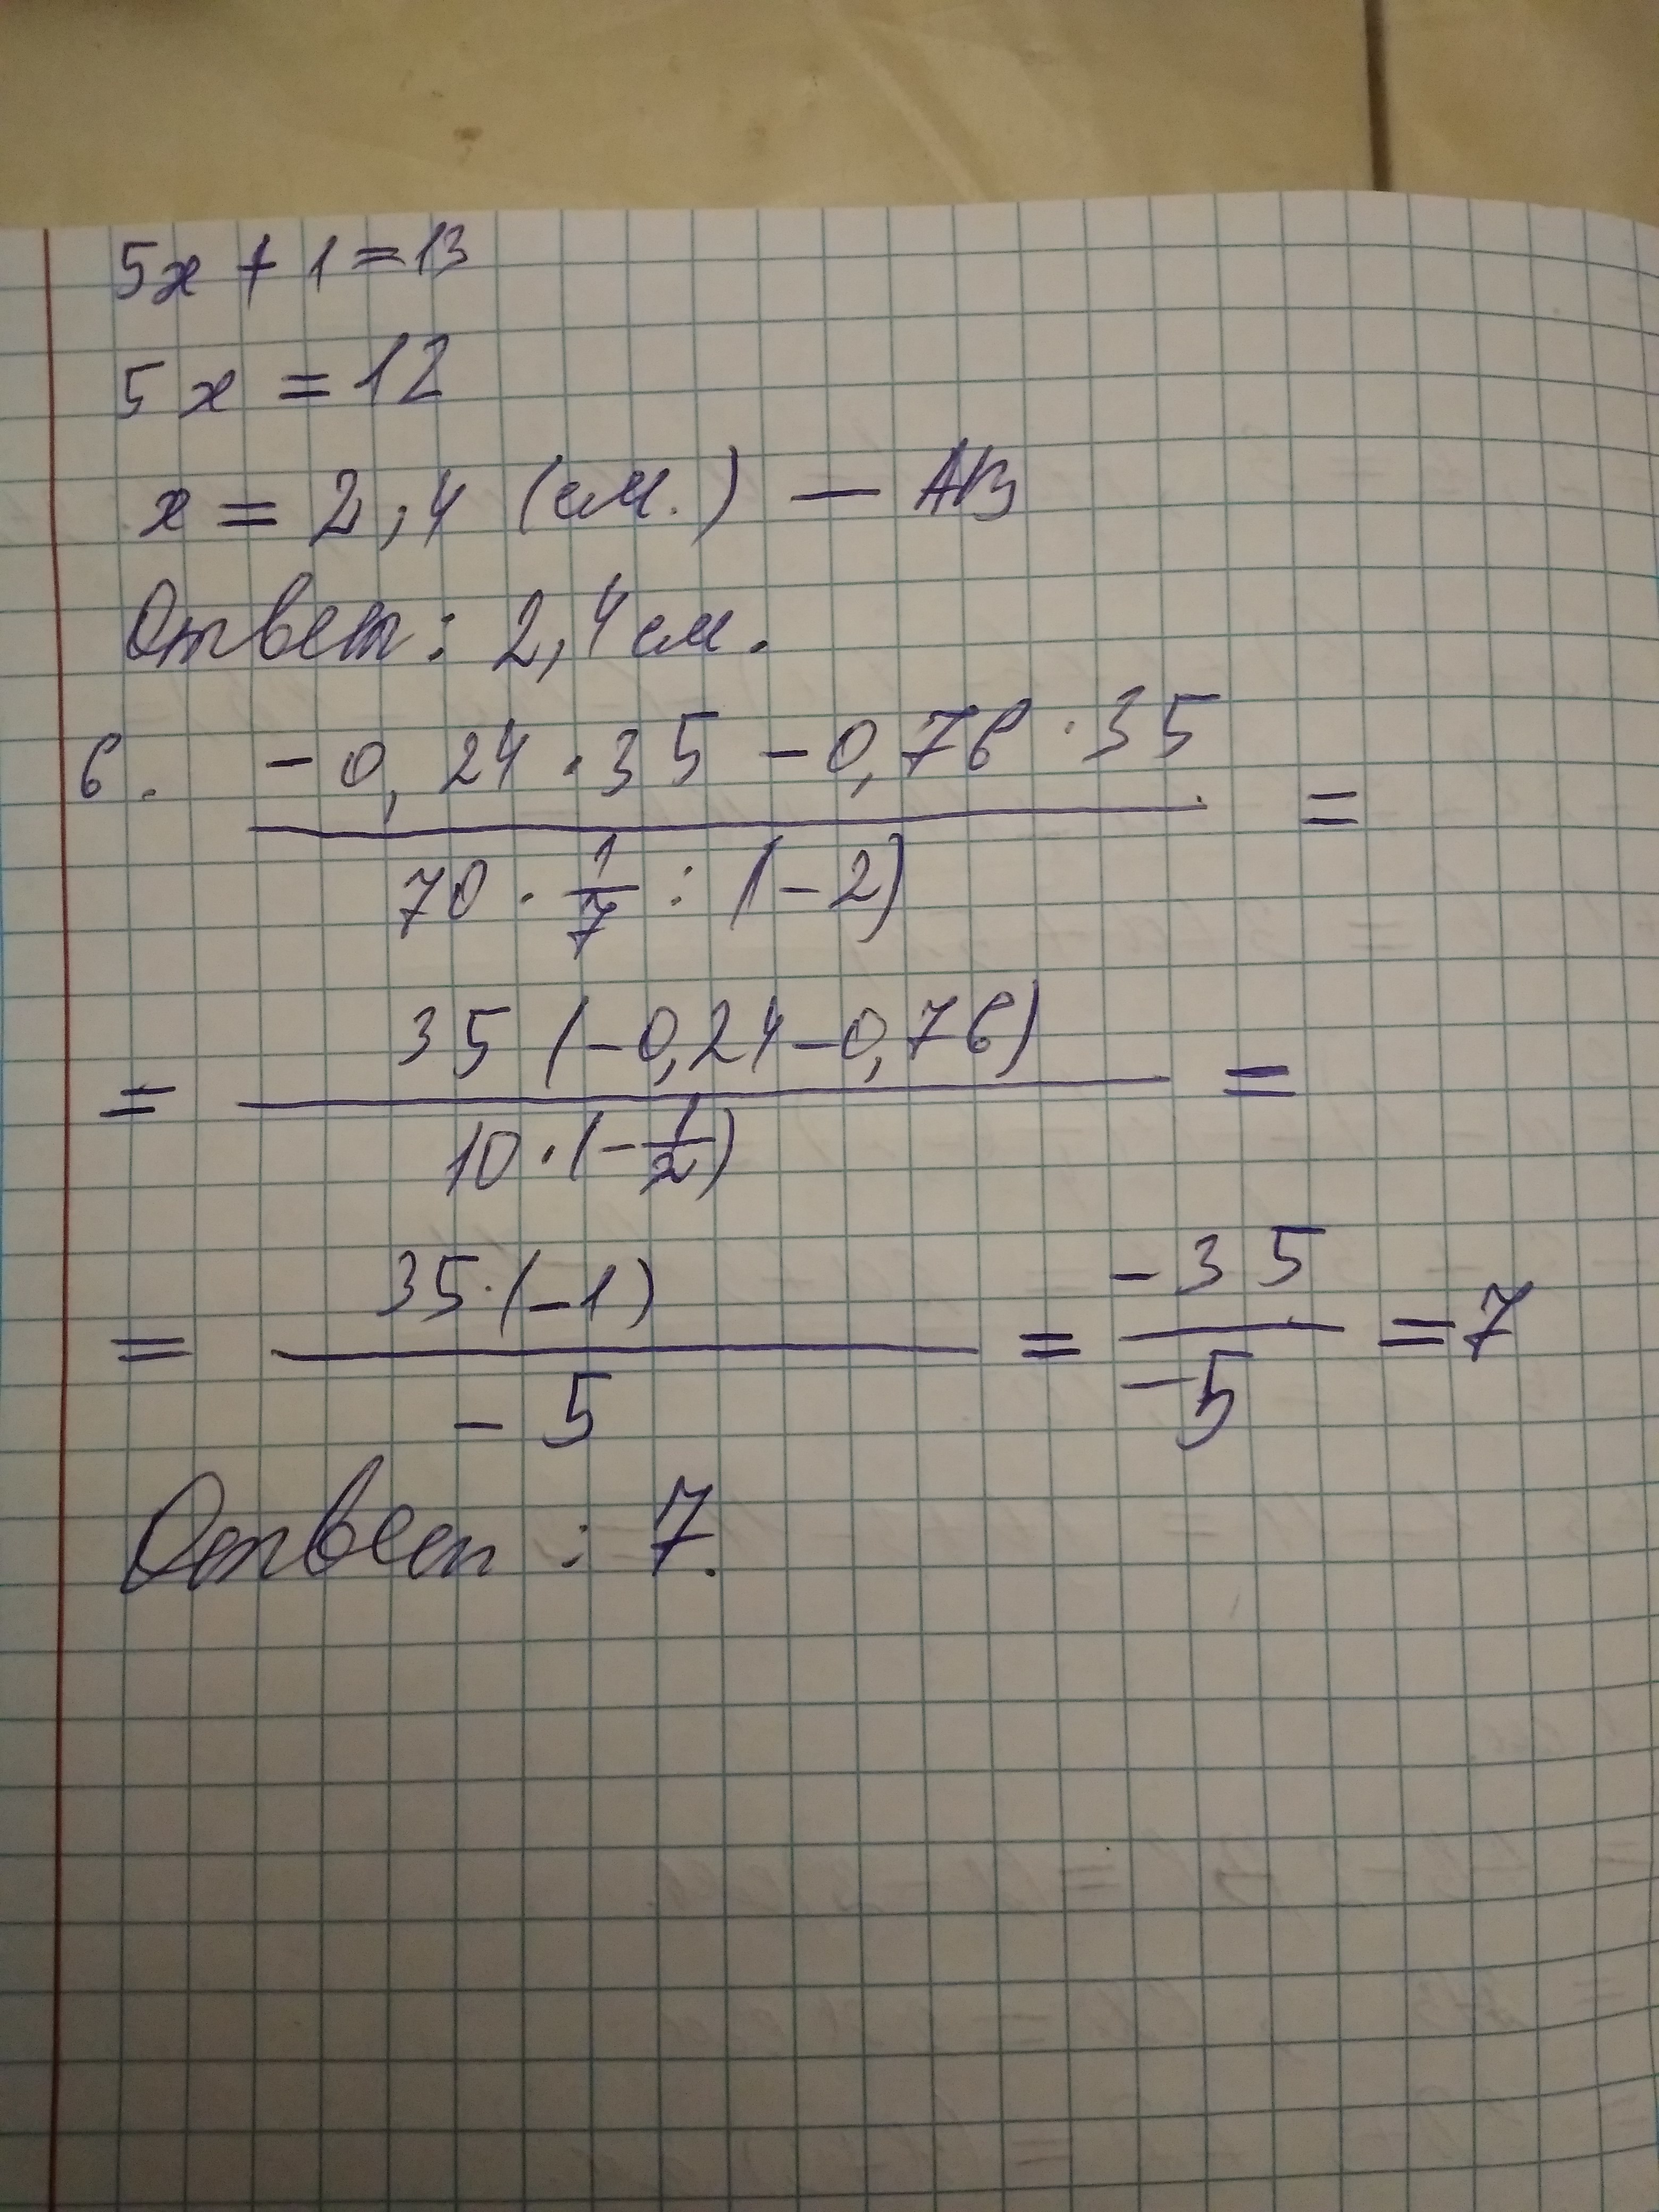 5x + 1 = 13
5x = 12
x = 2,4 (см.) — AB
Ответ: 2,4 см.
6. -0,24 · 35 - 0,76 · 35 =
70 · 1/7 : (-2)
35 (-0,24 - 0,76)
= =
10 · (-1/2)
35 · (-1) -35
= = = 7
-5 -5
Ответ: 7.